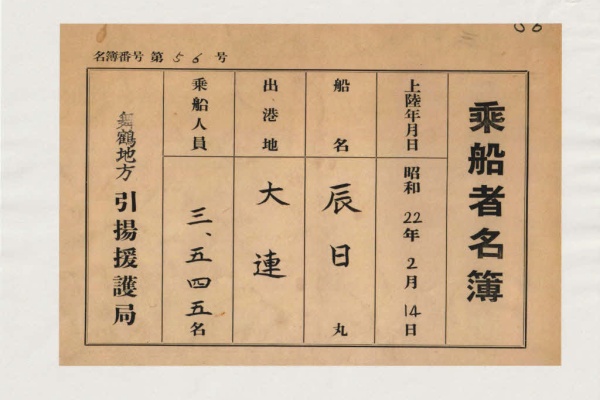 56
名簿番号 第 56 号
乗船者名簿
上陸年月日 昭和 22年 2月 14日
船名 辰日丸
出港地 大連
乗船人員 三、五四五名
舞鶴地方引揚援護局